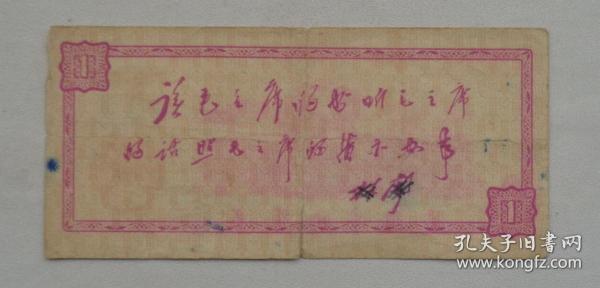 1
读毛主席的书听毛主席
的话照毛主席的指示办事
林彪
1
孔夫子旧书网
www.kongfz.com